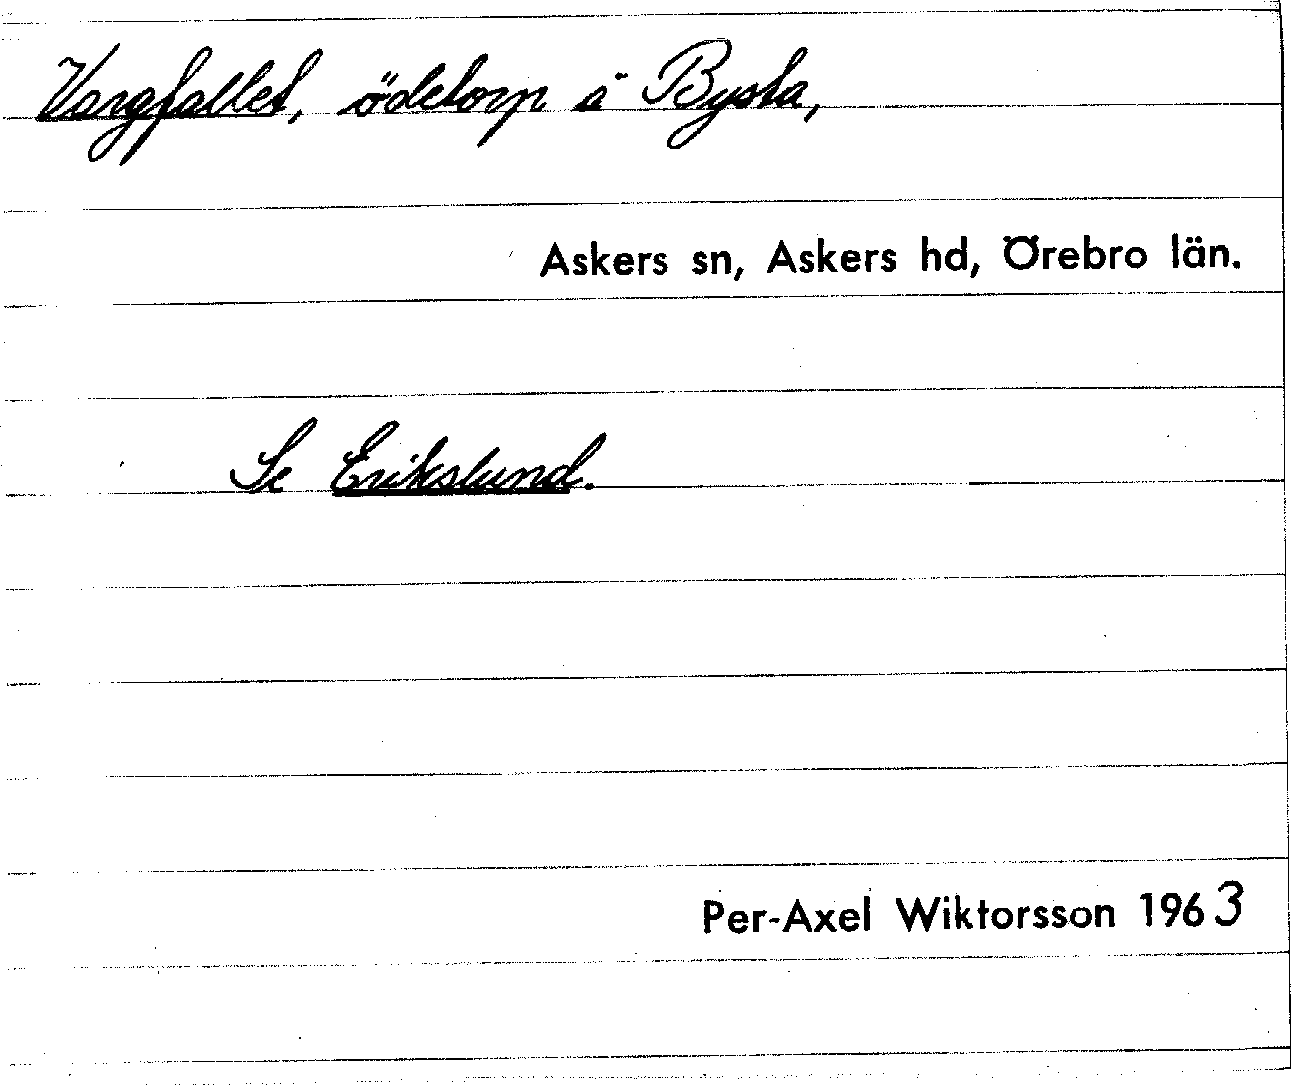 Vargfallet, ödetorp å Bysta,
Askers sn, Askers hd, Örebro län.
Se Erikslund.
Per-Axel Wiktorsson 1963